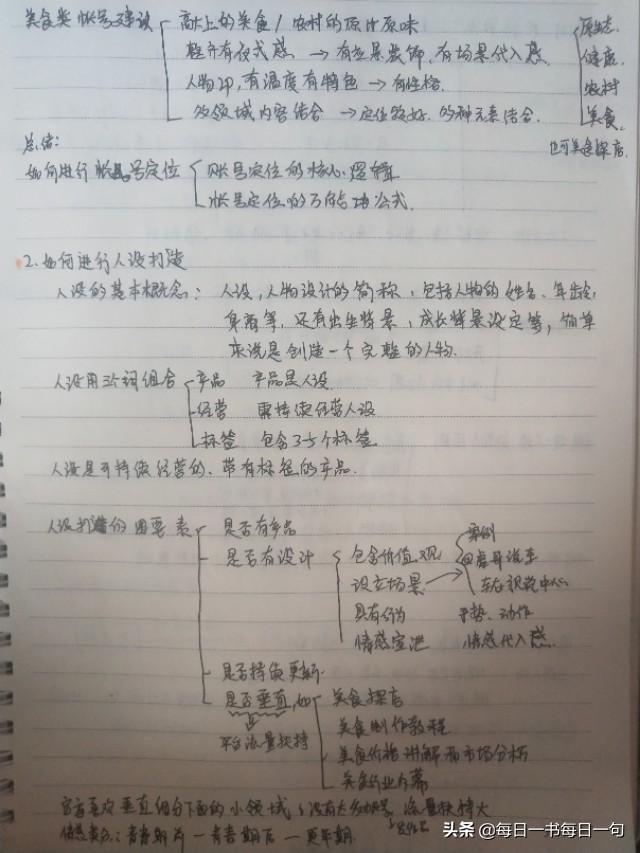 美食类帐号建设 高大上的美食/农村的原汁原味 原生态.
整齐有仪式感 → 有些景装饰,有场景代入感. 健康.
人物IP,有温度有特色 → 有性格. 农村
多领域内容结合 → 定位较好.多种元素结合. 美食.
总结: 也可美食探店.
如何进行帐号定位 账号定位的核心逻辑
帐号定位的万能公式.
2.如何进行人设打造
人设的基本概念: 人设,人物设计的简称,包括人物的姓名、年龄,
身高等,还有出生背景,成长背景设定等,简单
来说是创造一个完整的人物.
人设用三个词组合 产品 产品是人设.
经营 需持续经营人设
标签 包含3-5个标签
人设是可持续经营的、带有标签的产品.
人设打造的 因要素 是否有产品 案例
是否有设计 包含价值观 说车
设立场景 车在视觉中心
具有行为 手势、动作
情感宣泄 情感代入感.
是否持续更新.
是否垂直,如 美食探店
平台流量扶持 美食制作教程
美食价格讲解和市场分析
美食行业内幕
官方喜欢垂直细分下面的小领域, 没有太多 流量扶持大
情感类: 青春期前 — 青春期后 — 更年期.
头条 @每日一书每日一句